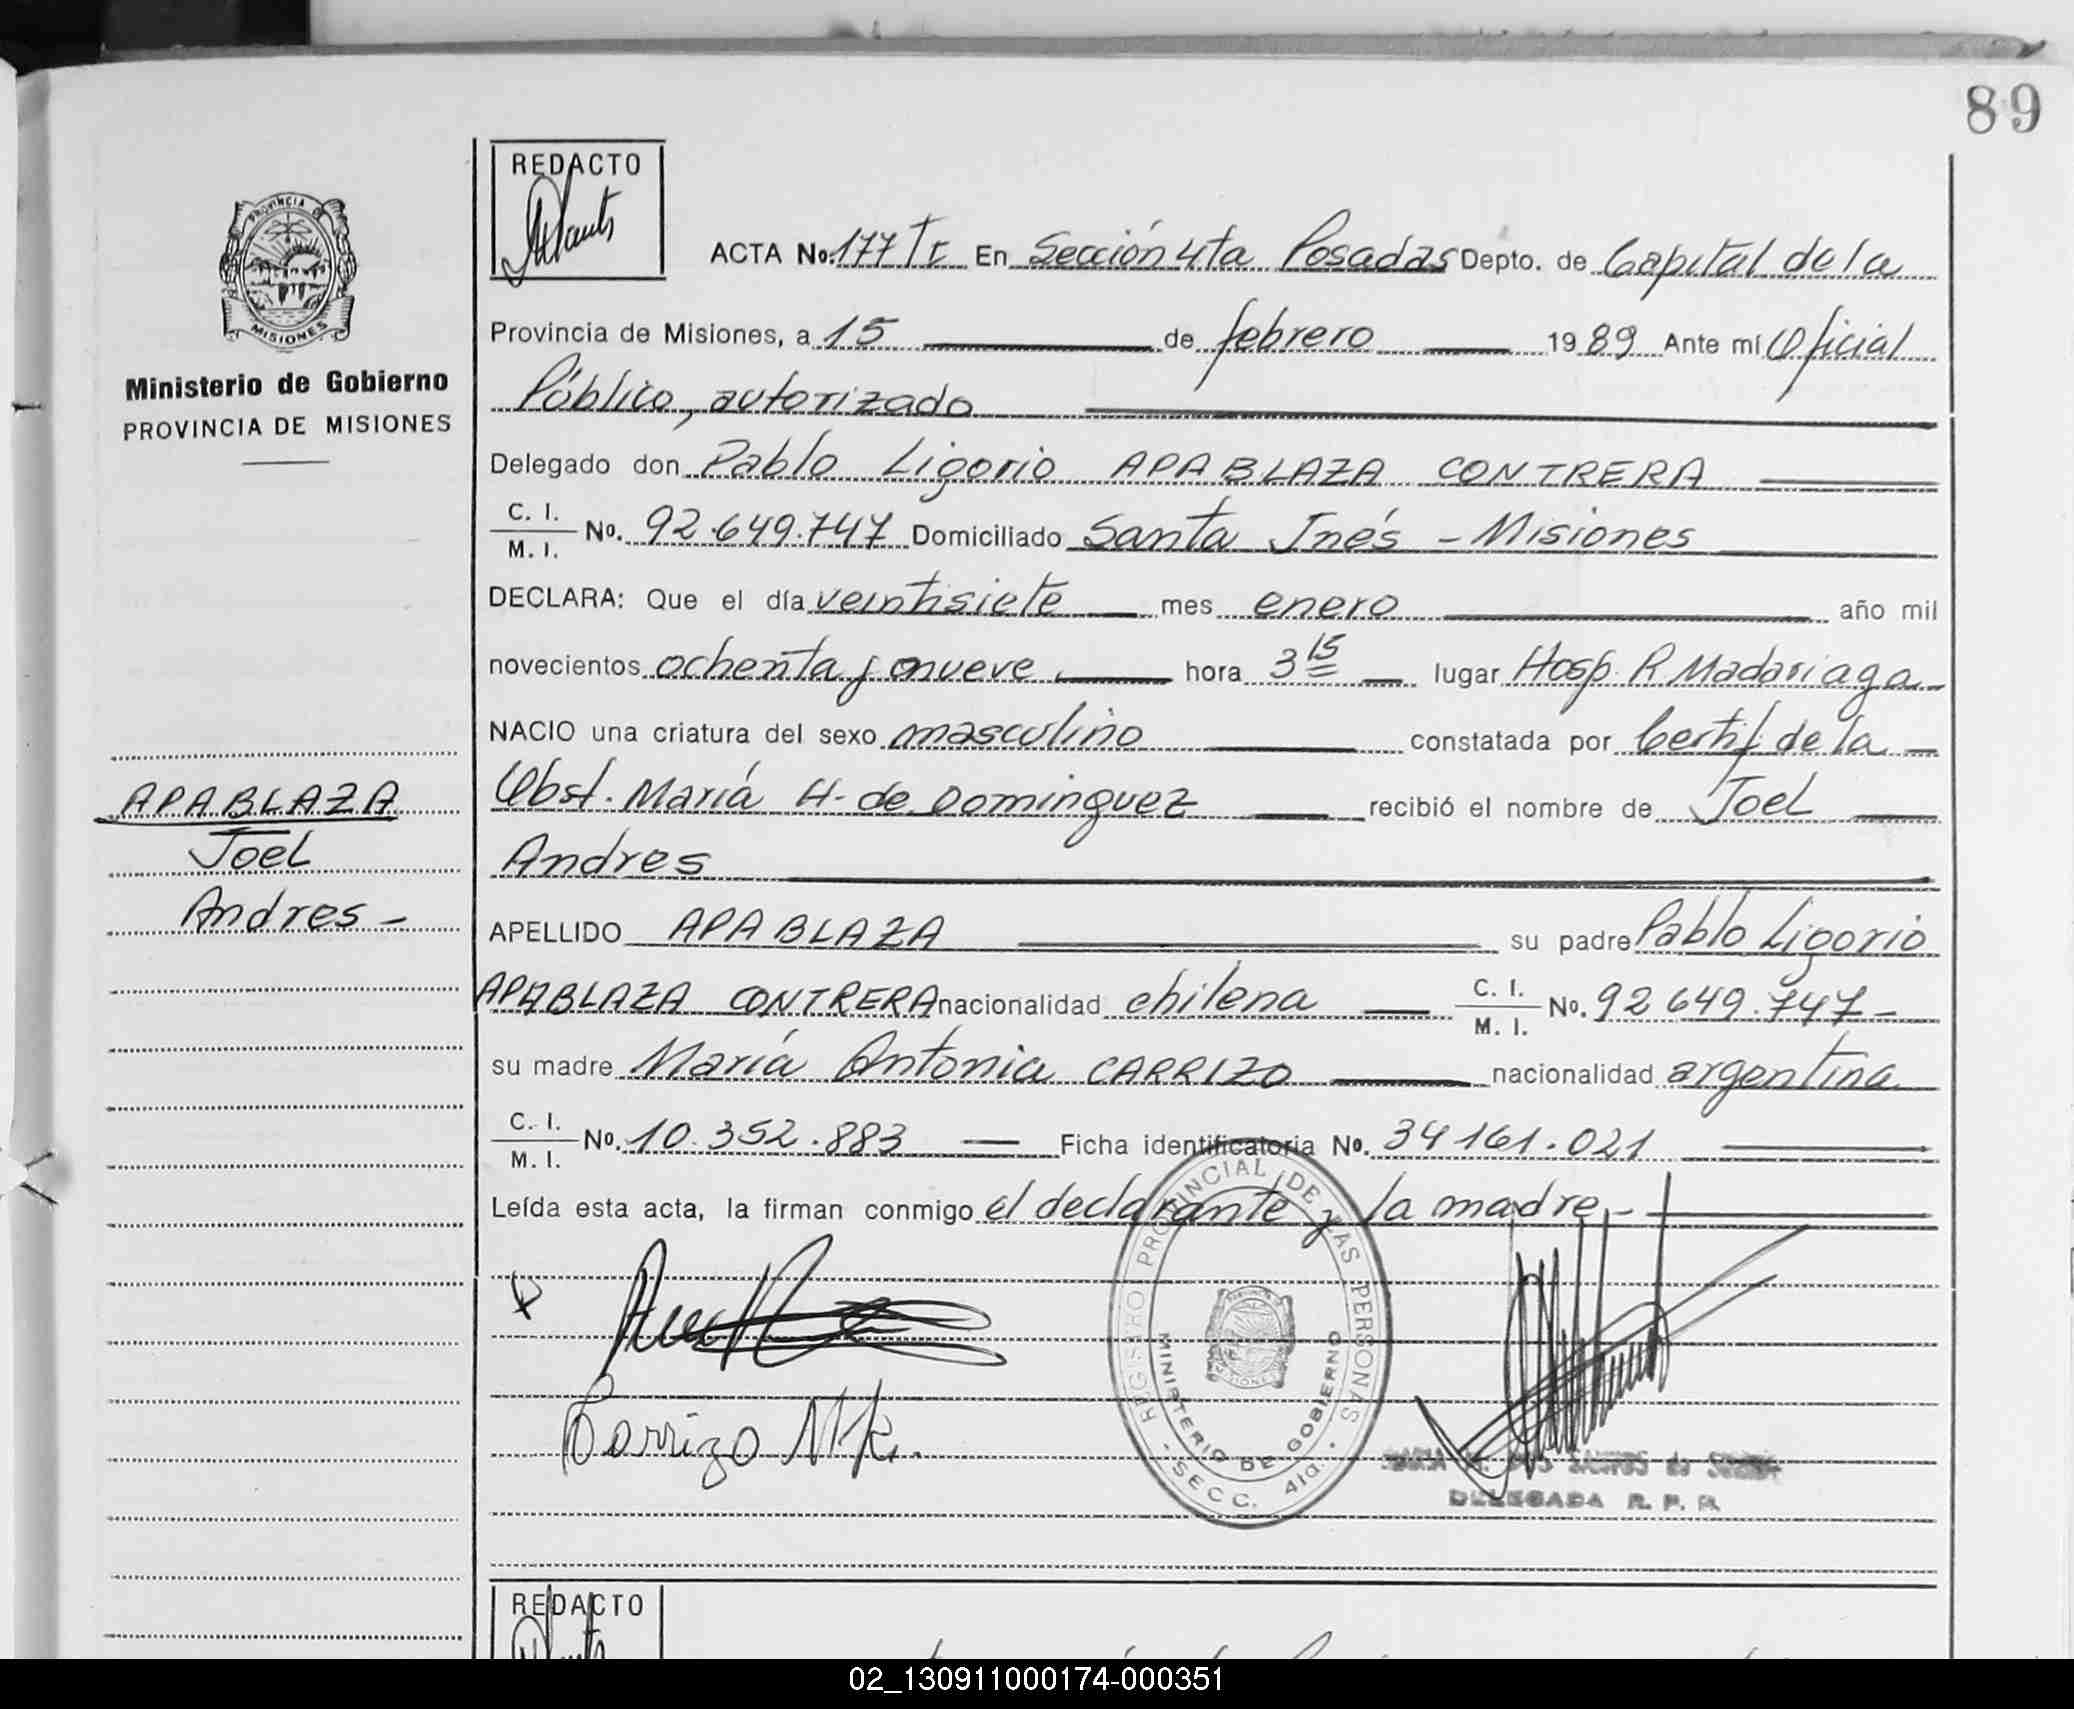 89
REDACTO
PROVINCIA DE
MISIONES
Ministerio de Gobierno
PROVINCIA DE MISIONES
ACTA No. 177 Tr En Sección 4ta Posadas Depto. de Capital de la
Provincia de Misiones, a 15 de febrero 1989 Ante mí Oficial
Público, autorizado
Delegado don Pablo Ligorio APABLAZA CONTRERA
C. I. / M. I. No. 92.649.747 Domiciliado Santa Inés - Misiones
DECLARA: Que el día veintisiete mes enero año mil
novecientos ochenta y nueve hora 3 15 lugar Hosp. R Madariaga
NACIO una criatura del sexo masculino constatada por Certif de la
Obst. María H. de Dominguez recibió el nombre de Joel
Andres
APABLAZA
Joel
Andres -
APELLIDO APABLAZA su padre Pablo Ligorio
APABLAZA CONTRERA nacionalidad chilena C. I. / M. I. No. 92 649.747 -
su madre María Antonia CARRIZO nacionalidad argentina
C. I. / M. I. No. 10.352.883 Ficha identificatoria No. 34 161.021
Leída esta acta, la firman conmigo el declarante y la madre.-
REGISTRO PROVINCIAL DE LAS PERSONAS
MINISTERIO DE GOBIERNO
- SECC. 4ta. -
Carrizo M.
DELEGADA R. P. P.
REDACTO
02_130911000174-000351